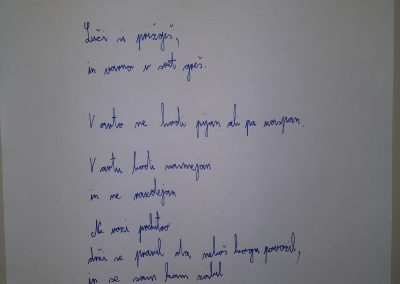 Luči si prižgeš,
in varno v svet greš.
V avto ne hodi pijan ali pa zaspan.
V avtu bodi nasmejan
in ne razdejan
Ne vozi prehitro
drži se pravil da neboš koga povozil,
in se sam kam zabil